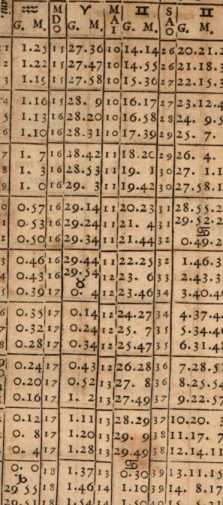 ♒ M D O ♈ M A I ♊ S A O ♊
G. M. G. M. G. M. G. M.
1.25 15 27.36 10 14.14 26 20.21.2
1.22 15 27.47 10 14.55 26 21.18.3
1.15 15 27.58 10 15.36 27 22.15.3
1.16 15 28. 9 10 16.17 27 23.12.4
1.13 16 28.20 10 16.58 28 24. 9.5
1.10 16 28.31 10 17.39 29 25. 7.
1. 7 16 28.42 11 18.20 29 26. 4.
1. 3 16 28.53 11 19. 1 30 27. 1.1
1. 0 16 29. 3 11 19.42 30 27.58.1
0.57 16 29.14 11 20.23 31 28.55.2
0.53 16 29.24 11 21. 4 31 29.52.2
♋
0.50 16 29.34 11 21.44 32 0.49.2
0.46 16 29.44 11 22.25 32 1.46.3
0.43 16 29.54 12 23. 6 33 2.43.3
♉
0.39 17 0. 4 12 23.46 34 3.40.4
0.35 17 0.14 12 24.27 34 4.37.4
0.32 17 0.24 12 25. 7 35 5.34.4
0.28 17 0.34 12 25.47 35 6.31.4
0.24 17 0.43 12 26.28 36 7.28.5
0.20 17 0.52 13 27. 8 36 8.25.5
0.16 17 1. 2 13 27.49 37 9.22.5
0.12 17 1.11 13 28.29 37 10.20.
0. 8 17 1.20 13 29. 9 38 11.17. 7
0. 4 17 1.28 13 29.49 38 12.14.11
♋
0. 0 18 1.37 13 0.30 39 13.11.15
♑
29 55 18 1.46 14 1.10 39 14. 8.17